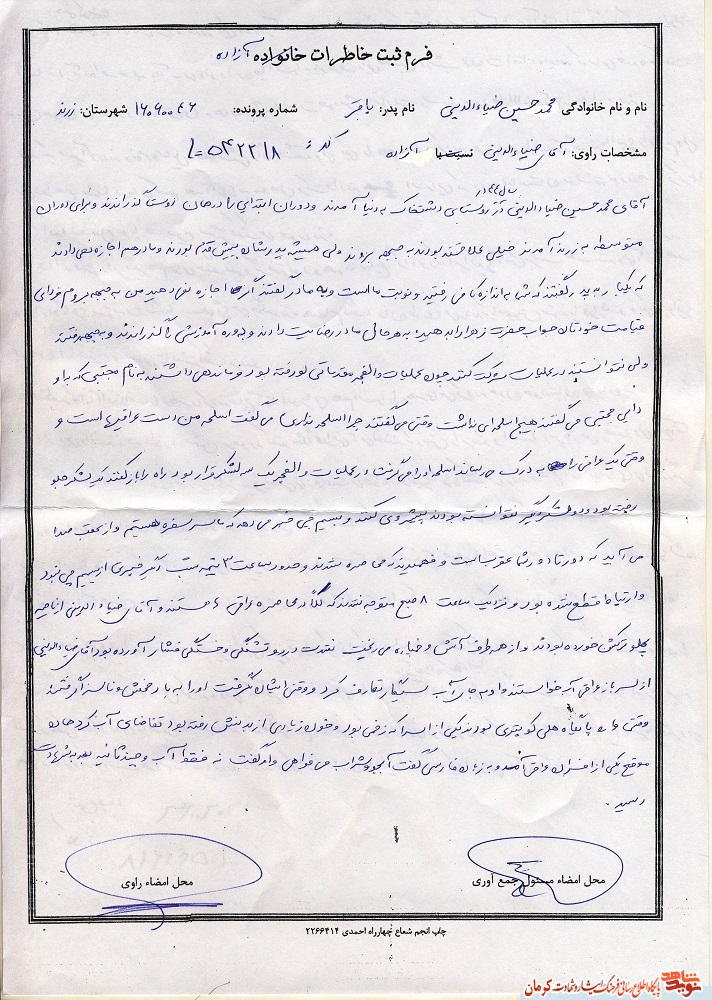 فرم ثبت خاطرات خانواده آزاده
نام و نام خانوادگی محمد حسین ضیاءالدینی نام پدر: باقر شماره پرونده: ۱۶۰۶۰۰۴۶ شهرستان: زرند
مشخصات راوی: آقای ضیاءالدینی نسبت با آزاده کد: ۵۴۲۲۱۸
آقای محمد حسین ضیاءالدینی در روستای دشتخاک به دنیا آمدند و دوران ابتدایی را در همان روستا گذراندند و برای دوران
متوسطه به زرند آمدند خیلی علاقمند بودند به جبهه بروند ولی همیشه پدرشان پیش قدم بودند و مادر هم اجازه نمی دادند
که یکبار به پدر گفتند که شما به اندازه کافی رفتید و نوبت ما است و به مادر گفتند اگر اجازه نمی دهید من به جبهه بروم فردای
قیامت خودتان جواب حضرت زهرا را بدهید به هر حال مادر رضایت دادند و دوره آموزشی را گذراندند و به جبهه رفتند
ولی نتوانستند در عملیات شرکت کنند چون عملیات والفجر مقدماتی لو رفته بود فرماندهی داشتند به نام مجتبی که به او
دایی مجتبی می گفتند هیچ اسلحه ای نداشت وقتی می گفتند چرا اسلحه نداری می گفت اسلحه من دست عراقیها است و
وقتی یک عراقی را به درک می رساند اسلحه او را می گرفت در عملیات والفجر یک سه لشگر قرار بود راه را باز کنند یک لشگر جلو
رفته بود و دو لشگر دیگر نتوانسته بودند پیشروی کنند و بیسیم چی خبر می دهد که ما سر سفره هستیم و از عقب صدا
می آید که دور تا دور شما عقرب است و فهمیدند که محاصره شدند و حدود ساعت ۳ نیمه شب دیگر خبری از بیسیم چی نبود
و ارتباط قطع شده بود و نزدیک ساعت ۸ صبح متوجه شدند که در محاصره عراقی ها هستند و آقای ضیاءالدینی از ناحیه
پهلو ترکش خورده بودند و از همه طرف آتش و خمپاره می ریخت شدت درد و تشنگی و خستگی فشار آورده بود آقای ضیاءالدینی
از سرباز عراقی آب خواستند و او به جای آب سیگار تعارف کرد و وقتی ایشان نگرفت او را به باد فحش و ناسزا گرفتند
وقتی که در پایگاه های کوچکی بودند یکی از اسرا که زخمی بود و خون زیادی از بدنش رفته بود تقاضای آب کرد همان
موقع یکی از افسران عراقی آمد و به زبان فارسی گفت آبجو و شراب می خواهی و او گفت نه فقط آب و چند ثانیه بعد به شهادت
رسید.
محل امضاء مسئول جمع آوری محل امضاء راوی
چاپ انجم شعاع چهارراه احمدی ۲۲۶۶۴۱۴
نوید شاهد پایگاه اطلاع رسانی فرهنگ ایثار و شهادت کرمان